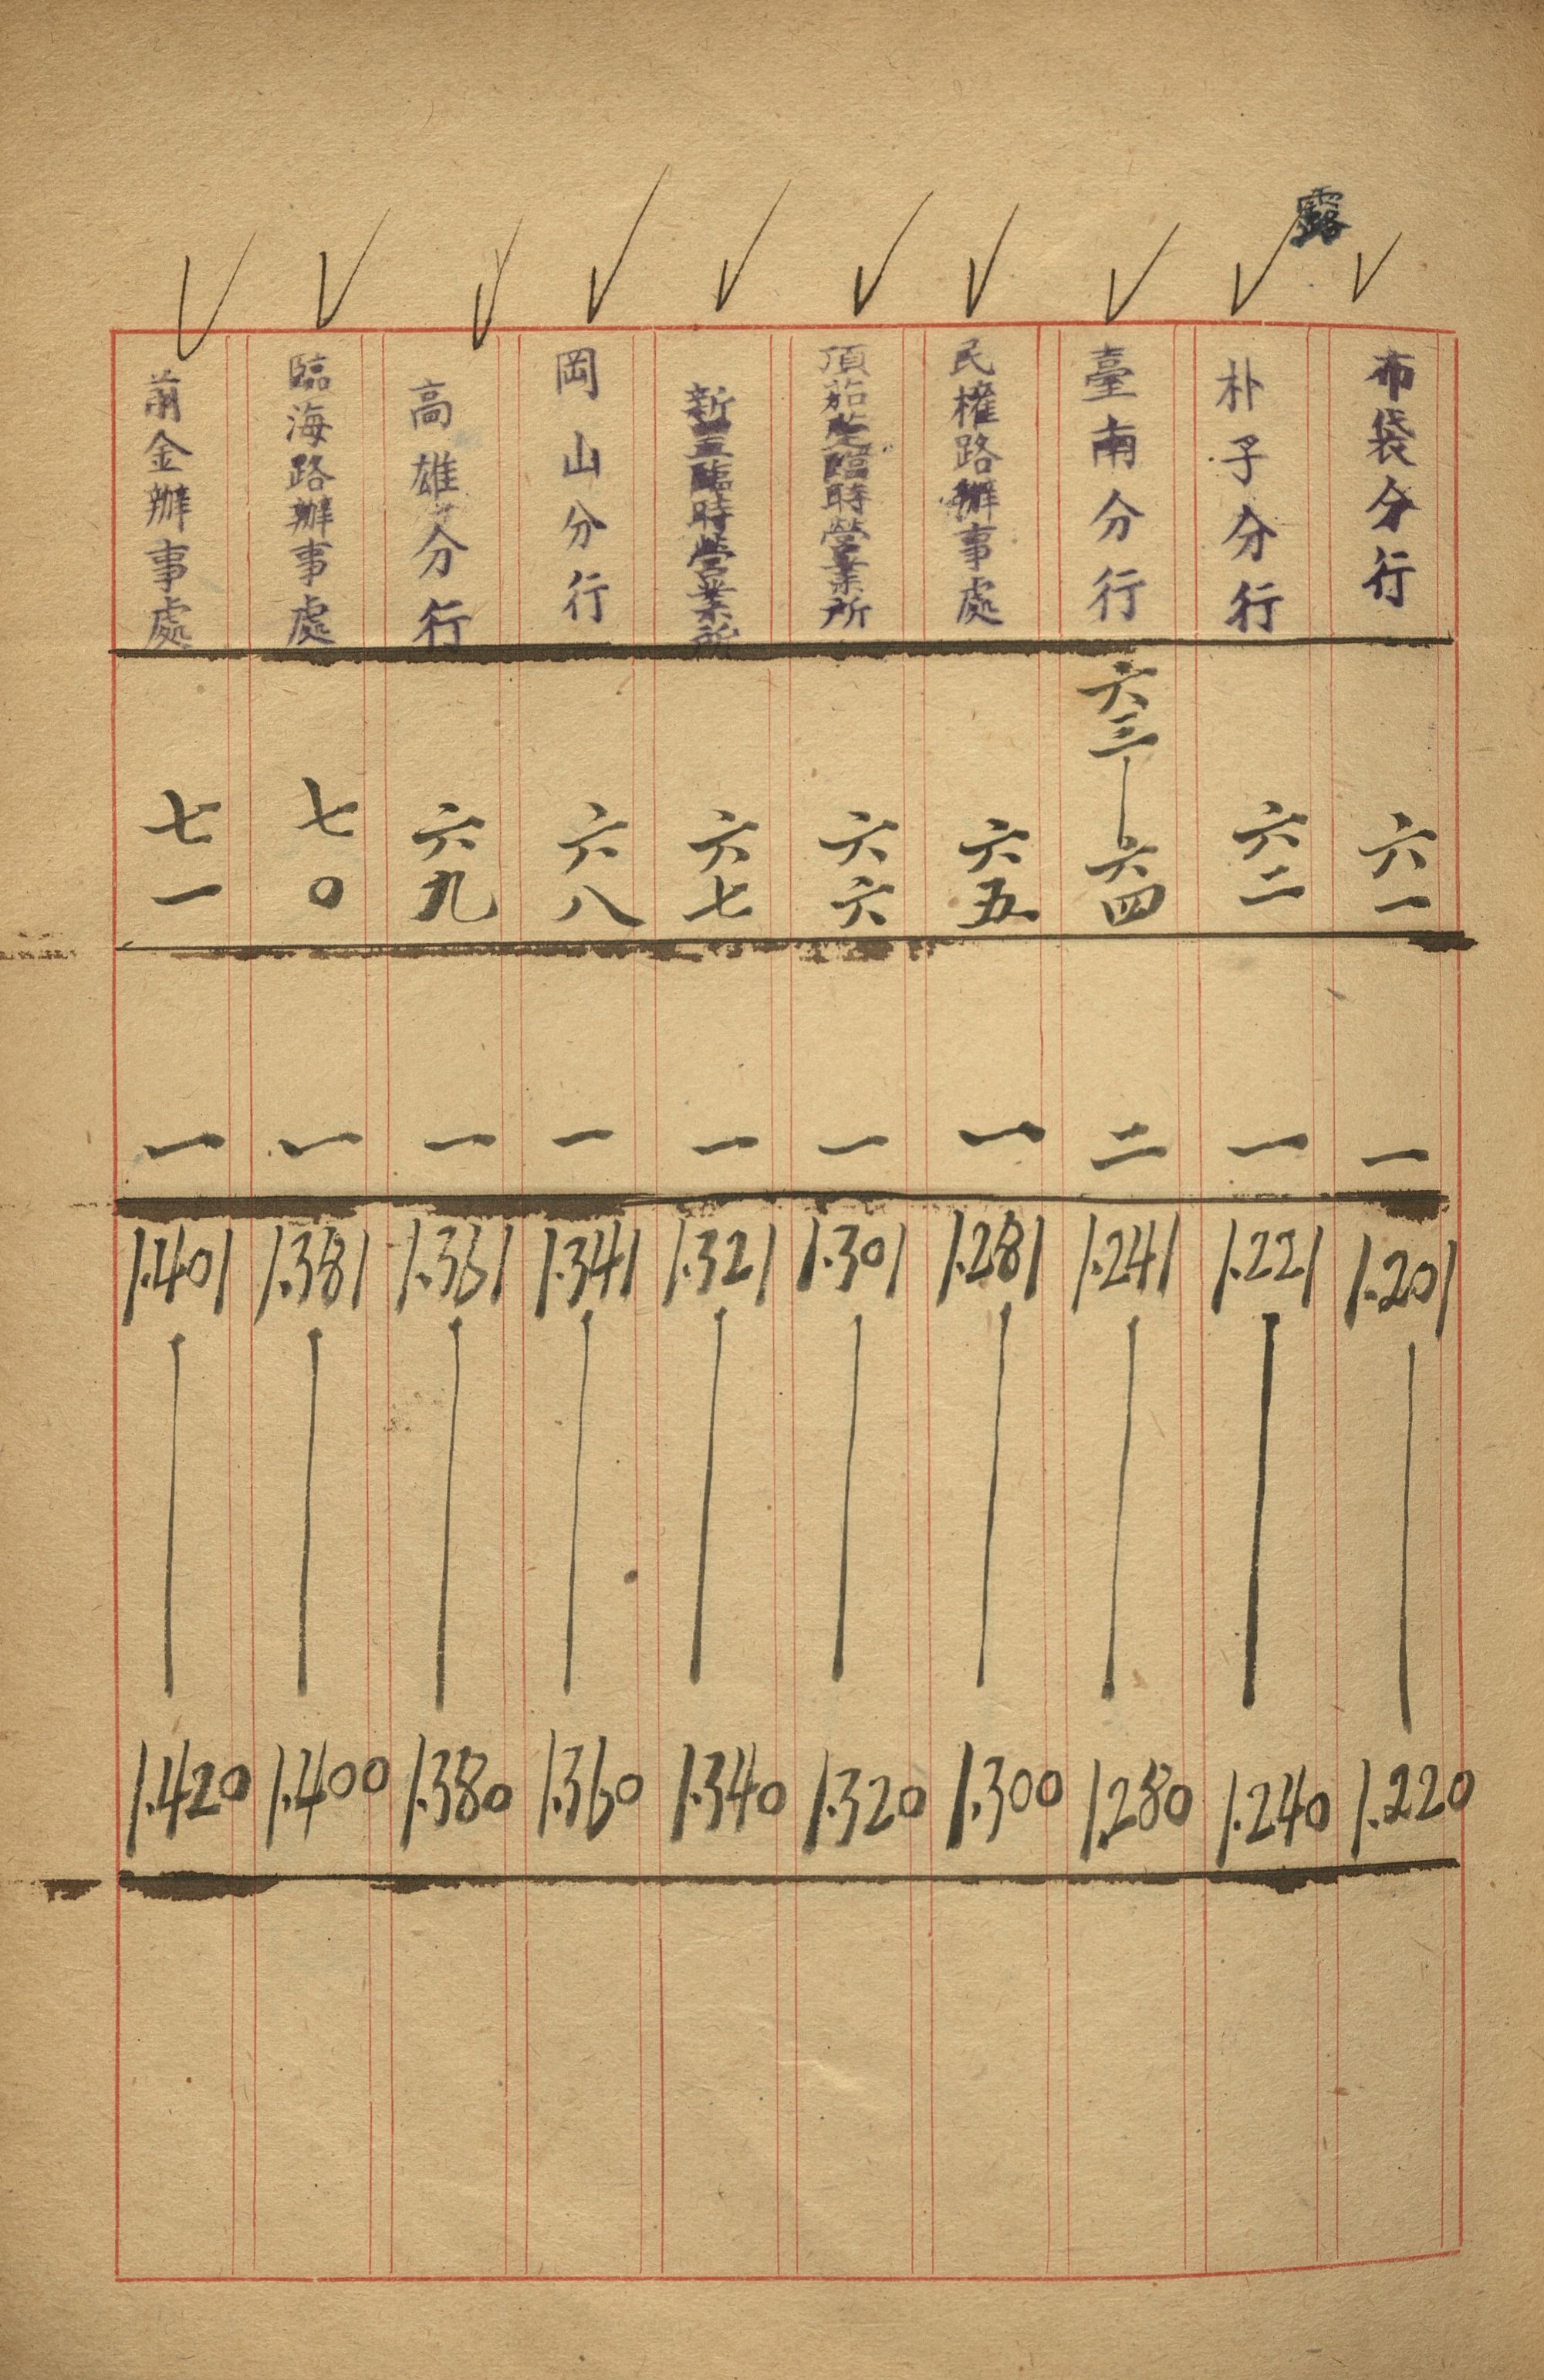 露
布袋分行 六一 一 1.201 1.220
朴子分行 六二 一 1.221 1.240
臺南分行 六三—六四 二 1.241 1.280
民權路辦事處 六五 一 1.281 1.300
頂茄萣臨時營業所 六六 一 1.301 1.320
新豆臨時營業所 六七 一 1.321 1.340
岡山分行 六八 一 1.341 1.360
高雄分行 六九 一 1.361 1.380
臨海路辦事處 七〇 一 1.381 1.400
前金辦事處 七一 一 1.401 1.420